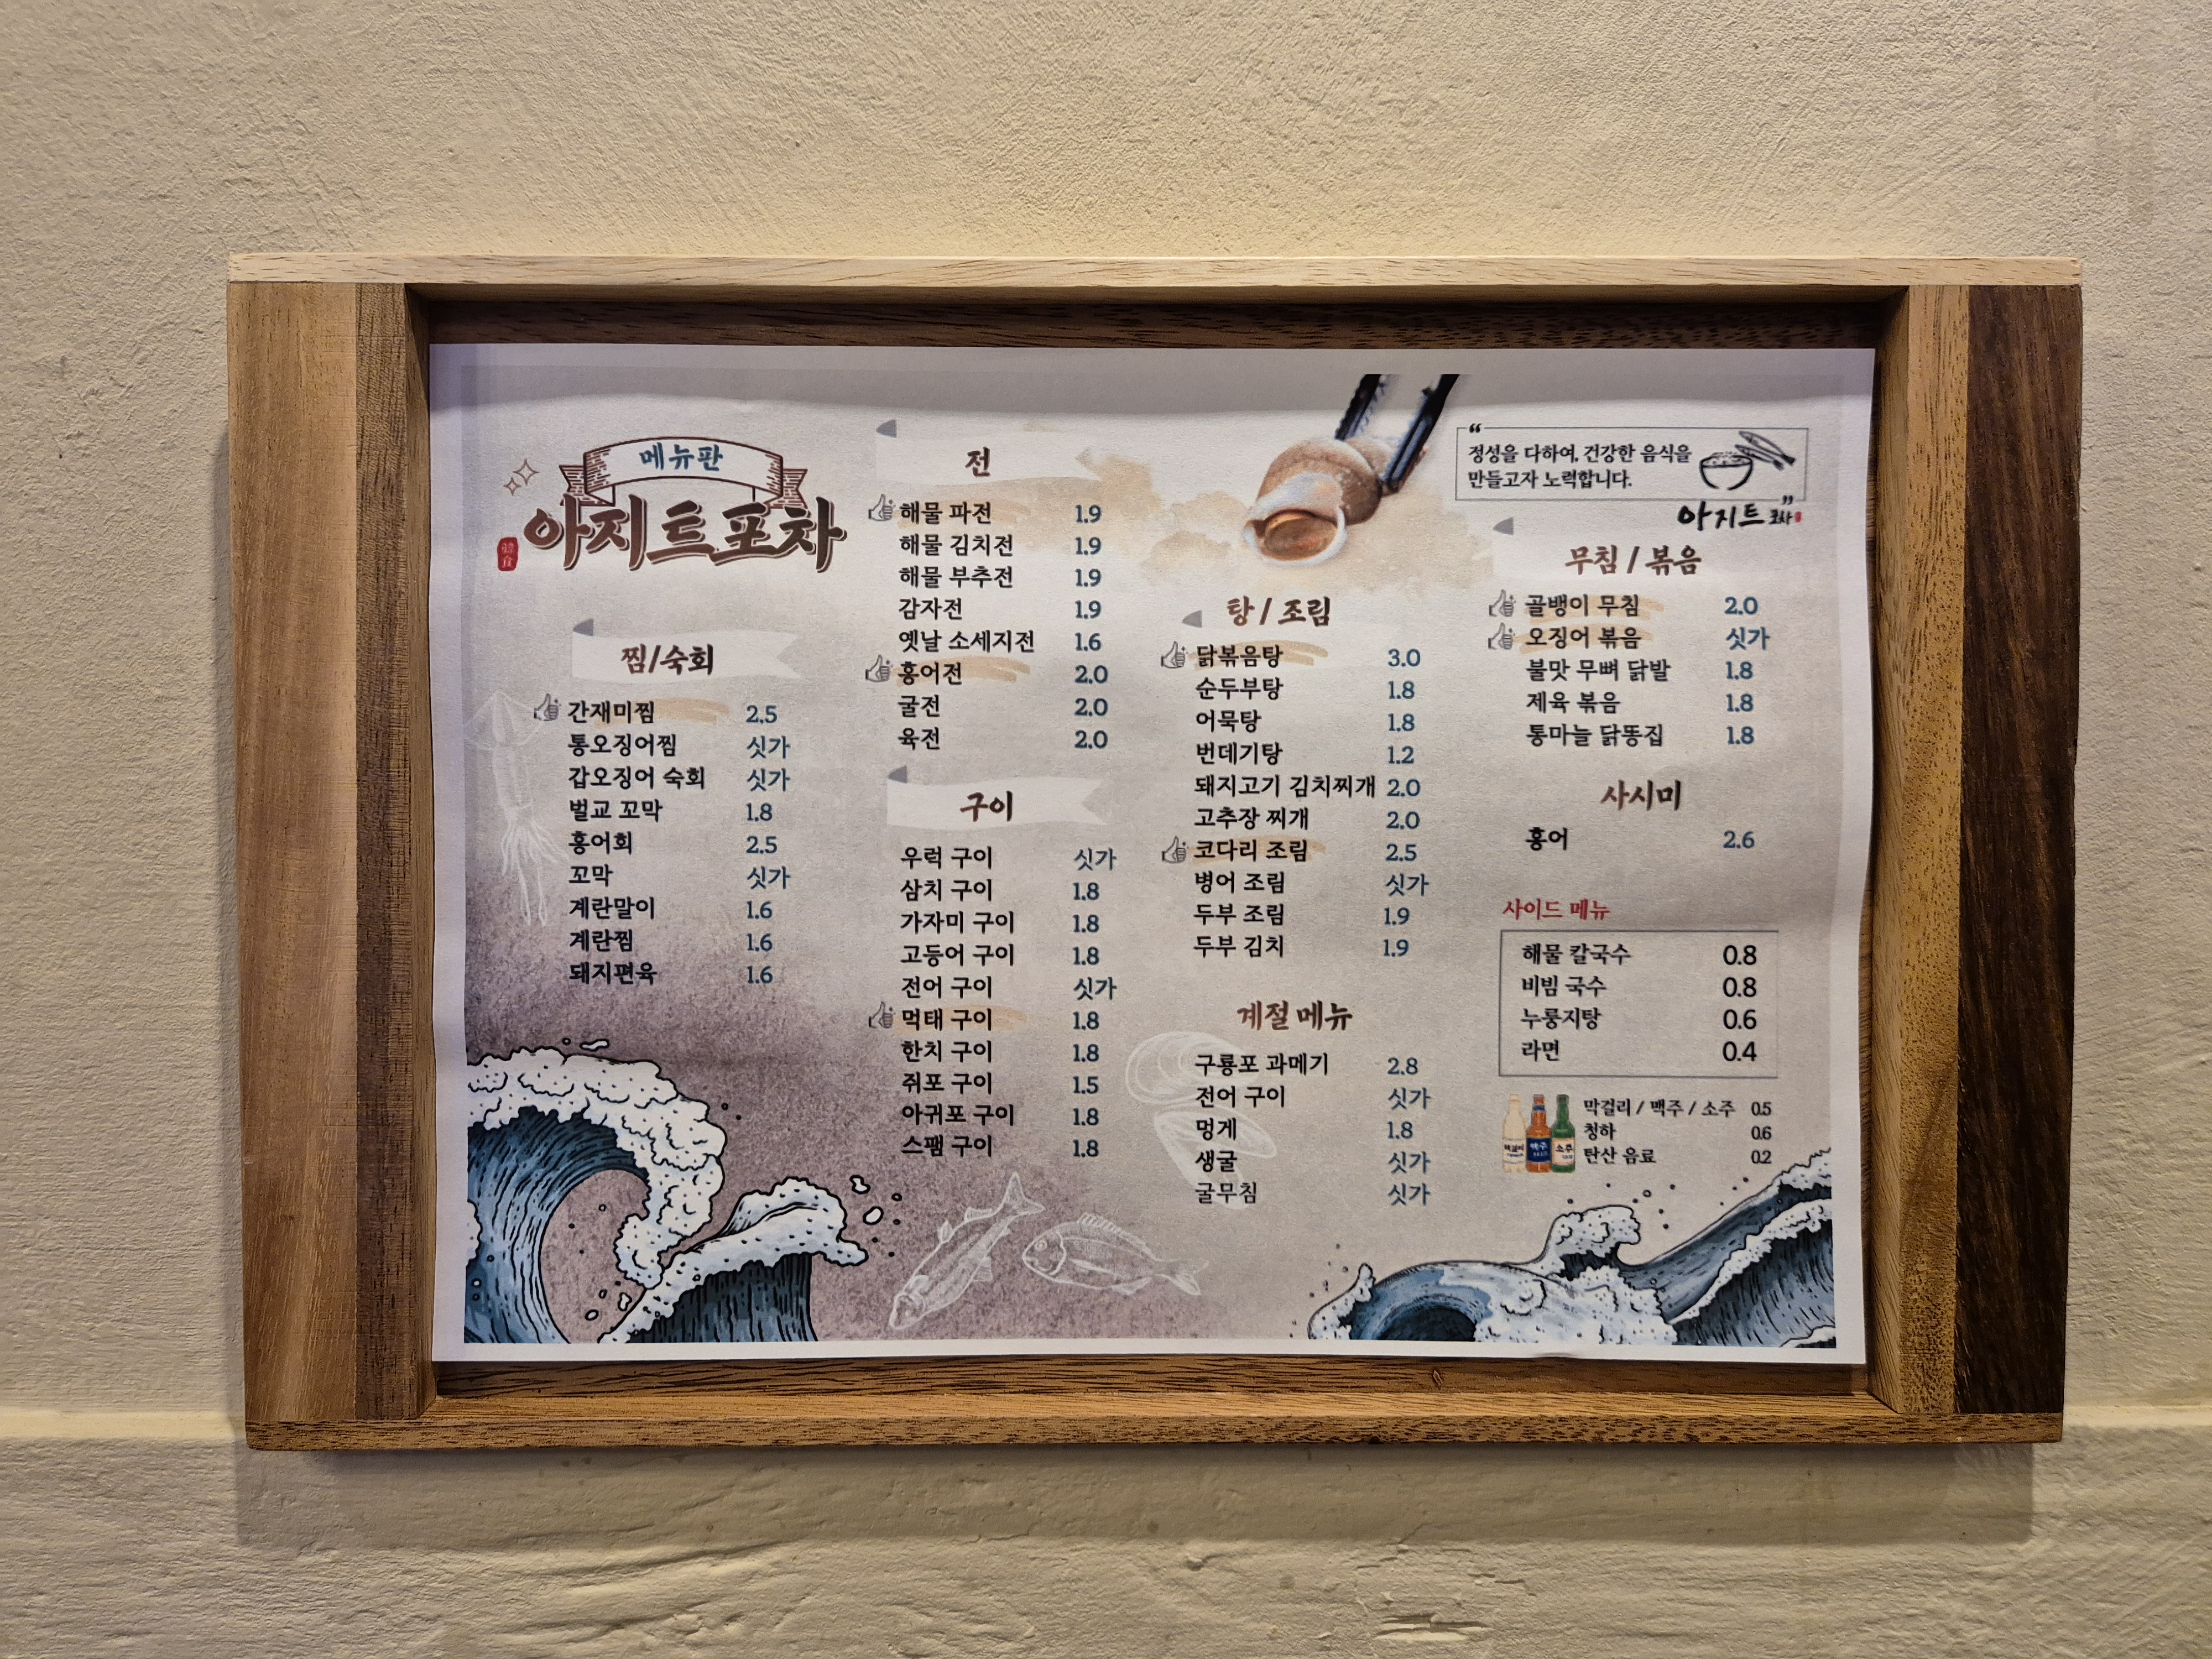 메뉴판
아지트포차
찜/숙회
간재미찜 2.5
통오징어찜 싯가
갑오징어 숙회 싯가
벌교 꼬막 1.8
홍어회 2.5
꼬막 싯가
계란말이 1.6
계란찜 1.6
돼지편육 1.6
전
해물 파전 1.9
해물 김치전 1.9
해물 부추전 1.9
감자전 1.9
옛날 소세지전 1.6
홍어전 2.0
굴전 2.0
육전 2.0
구이
우럭 구이 싯가
삼치 구이 1.8
가자미 구이 1.8
고등어 구이 1.8
전어 구이 싯가
먹태 구이 1.8
한치 구이 1.8
쥐포 구이 1.5
아귀포 구이 1.8
스팸 구이 1.8
탕 / 조림
닭볶음탕 3.0
순두부탕 1.8
어묵탕 1.8
번데기탕 1.2
돼지고기 김치찌개 2.0
고추장 찌개 2.0
코다리 조림 2.5
병어 조림 싯가
두부 조림 1.9
두부 김치 1.9
계절 메뉴
구룡포 과메기 2.8
전어 구이 싯가
멍게 1.8
생굴 싯가
굴무침 싯가
“
정성을 다하여, 건강한 음식을
만들고자 노력합니다.
”
아지트 포차
무침 / 볶음
골뱅이 무침 2.0
오징어 볶음 싯가
불맛 무뼈 닭발 1.8
제육 볶음 1.8
통마늘 닭똥집 1.8
사시미
홍어 2.6
사이드 메뉴
해물 칼국수 0.8
비빔 국수 0.8
누룽지탕 0.6
라면 0.4
막걸리 / 맥주 / 소주 0.5
청하 0.6
탄산 음료 0.2
막걸리 맥주 소주